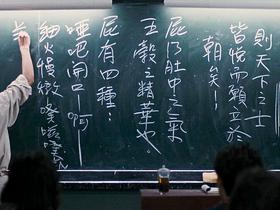 則天下之士
皆悅而願立於
朝矣
屁乃肚中之氣
五穀之精華也
屁有四種：
啞吧開口—啊
細火慢燉